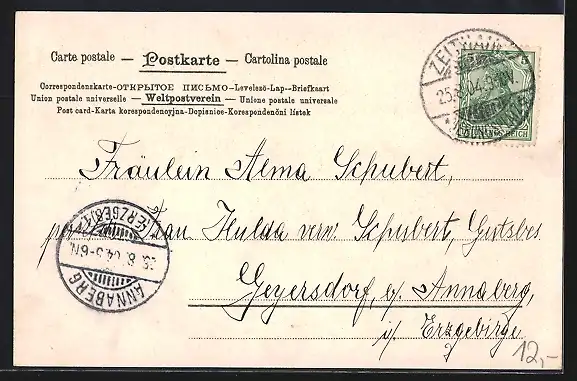 Carte postale — Postkarte — Cartolina postale
Correspondenzkarte-ОТКРЫТОЕ ПИСЬМО-Levelező-Lap--Briefkaart
Union postale universelle — Weltpostverein — Unione postale universale
Post card-Karta korespondencyjna-Dopisnice-Korespondenční lístek
ZEITHAIN
25.8.04.
REICH
Fräulein Alma Schubert,
Frau Hulda verw. Schubert, Gutsbes.
Geyersdorf, b/ Annaberg,
i/ Erzgebirge
ANNABERG
(ERZGEB.)
8.04.5-6N.
12,-